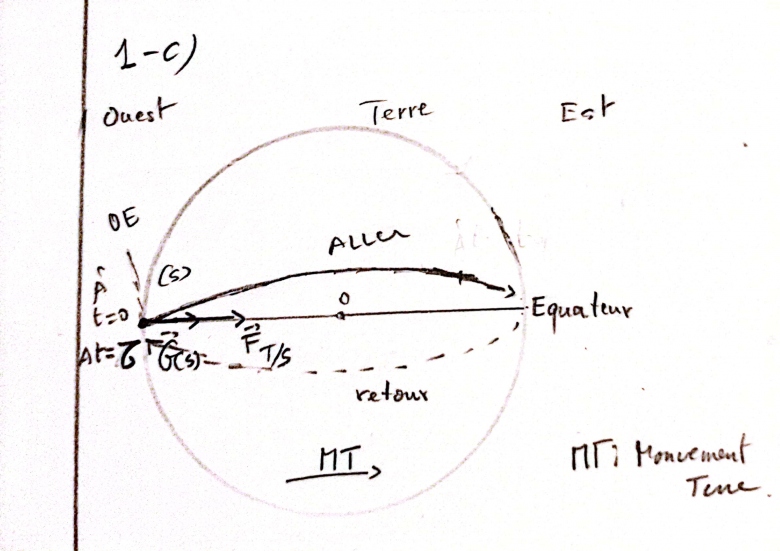 1-c)
Ouest
Terre
Est
OE
(S)
ALLER
À
t=0
O
Equateur
At=
F T/S
retour
MT
MT: Mouvement
Terre